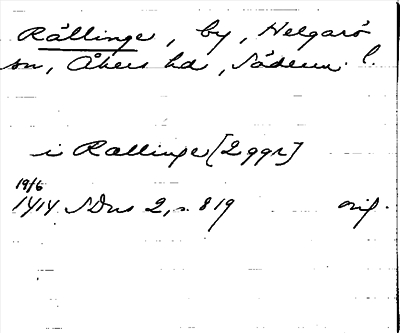 Rällinge, by, Helgarö
sn, Åkers hd, Söderm. l.
i Rallinge [2 ggr]
19/6
1414 SDns 2, s. 819 orig.